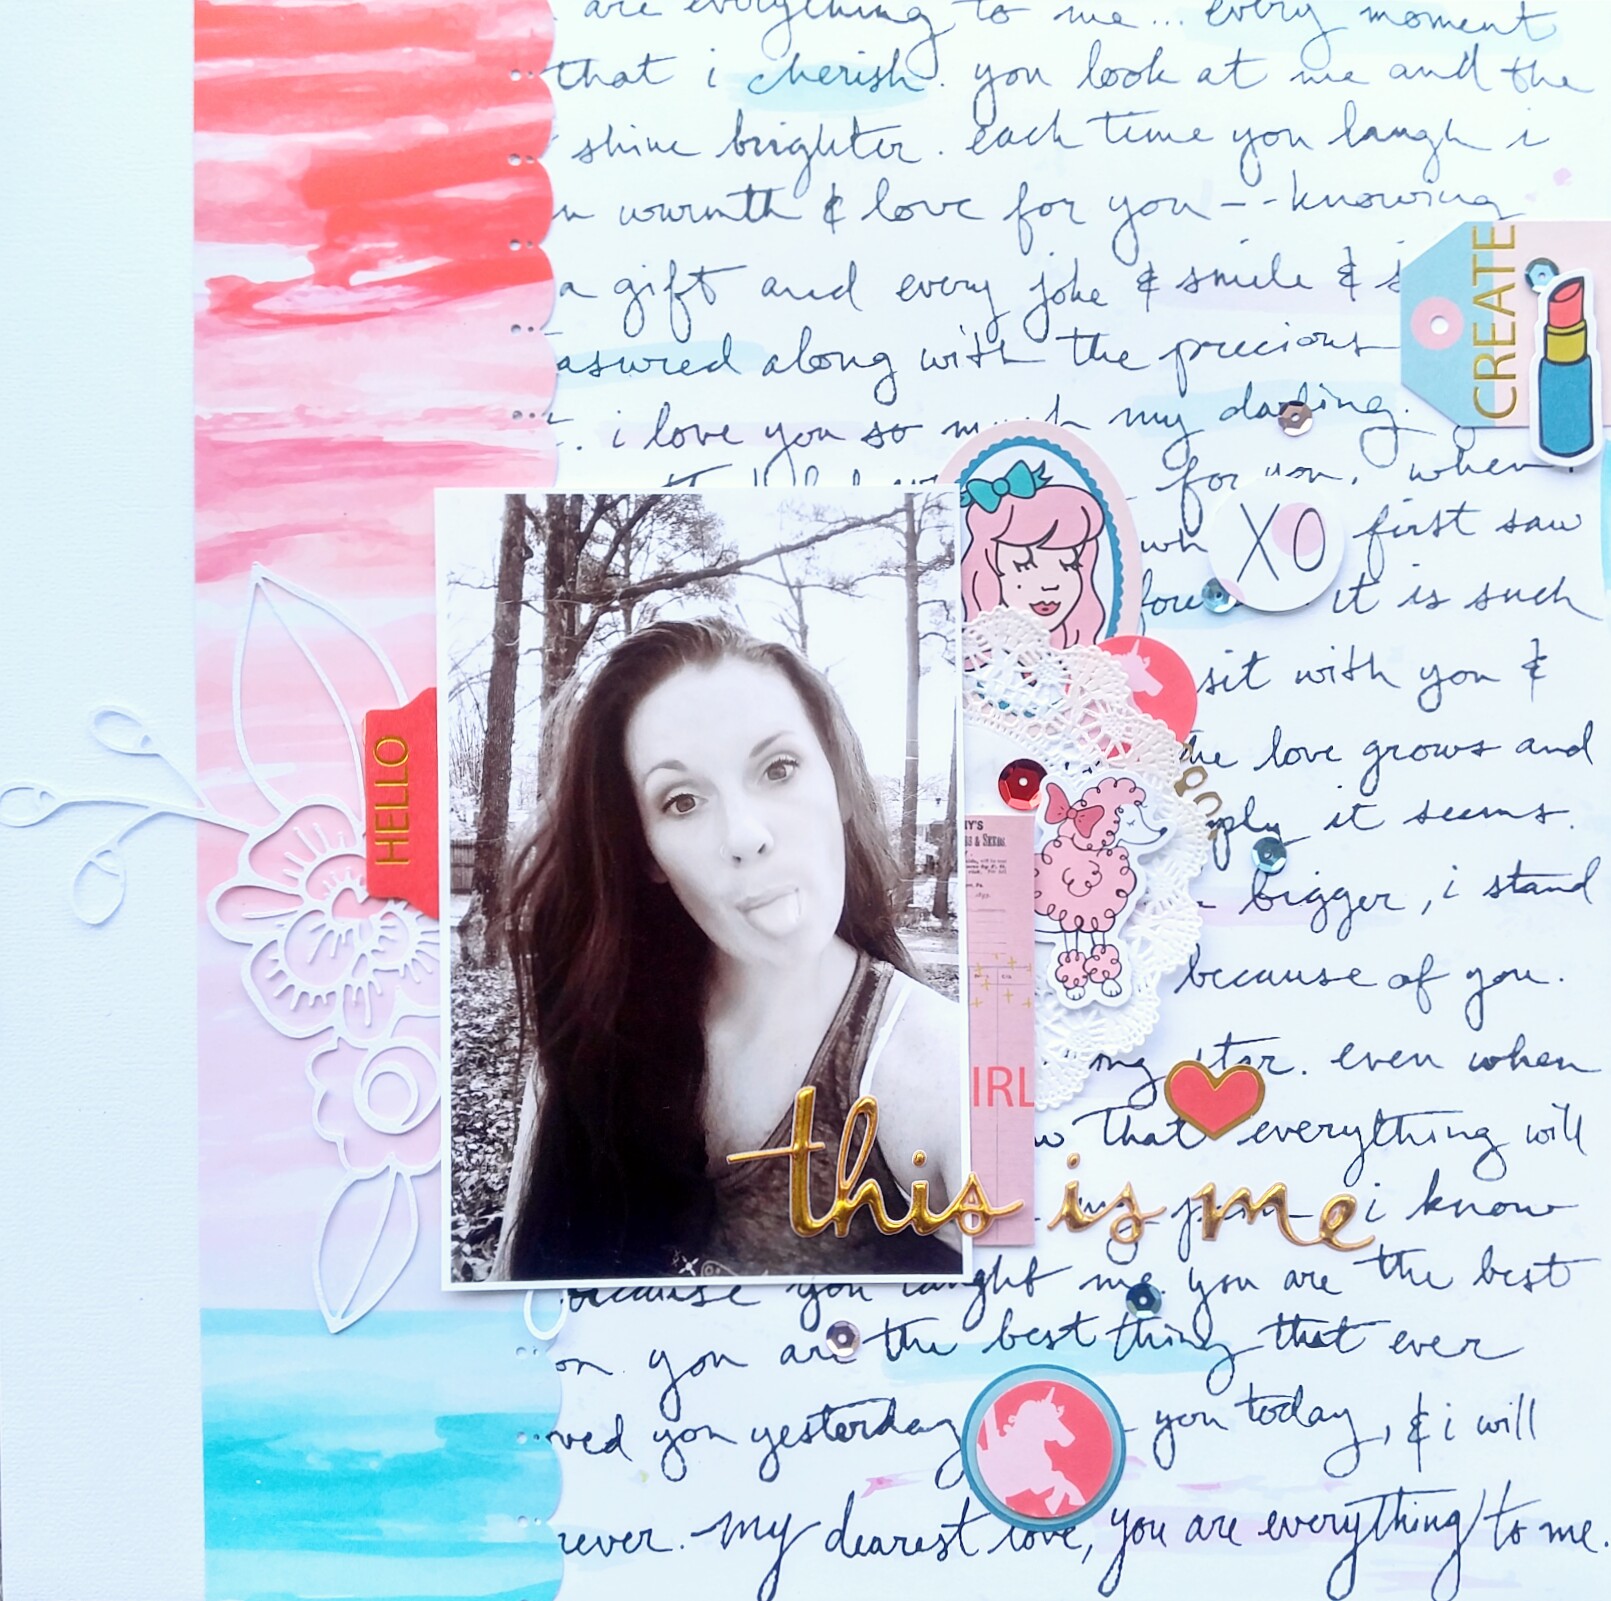 are everything to me... every moment
that i cherish. you look at me and the
shine brighter. each time you laugh i
warmth & love for you -- knowing
a gift and every joke & smile &
CREATE
asured along with the precious
i love you so much my darling.
for you. when
XO
first saw
it is such
sit with you &
HELLO
the love grows and
NY'S
& SEEDS
it seems.
bigger, i stand
because of you.
IRL
my star. even when
that everything will
this is me
i know
because you taught me. you are the best
on you are the best thing that ever
ved you yesterday you today, & i will
rever. my dearest love, you are everything to me.